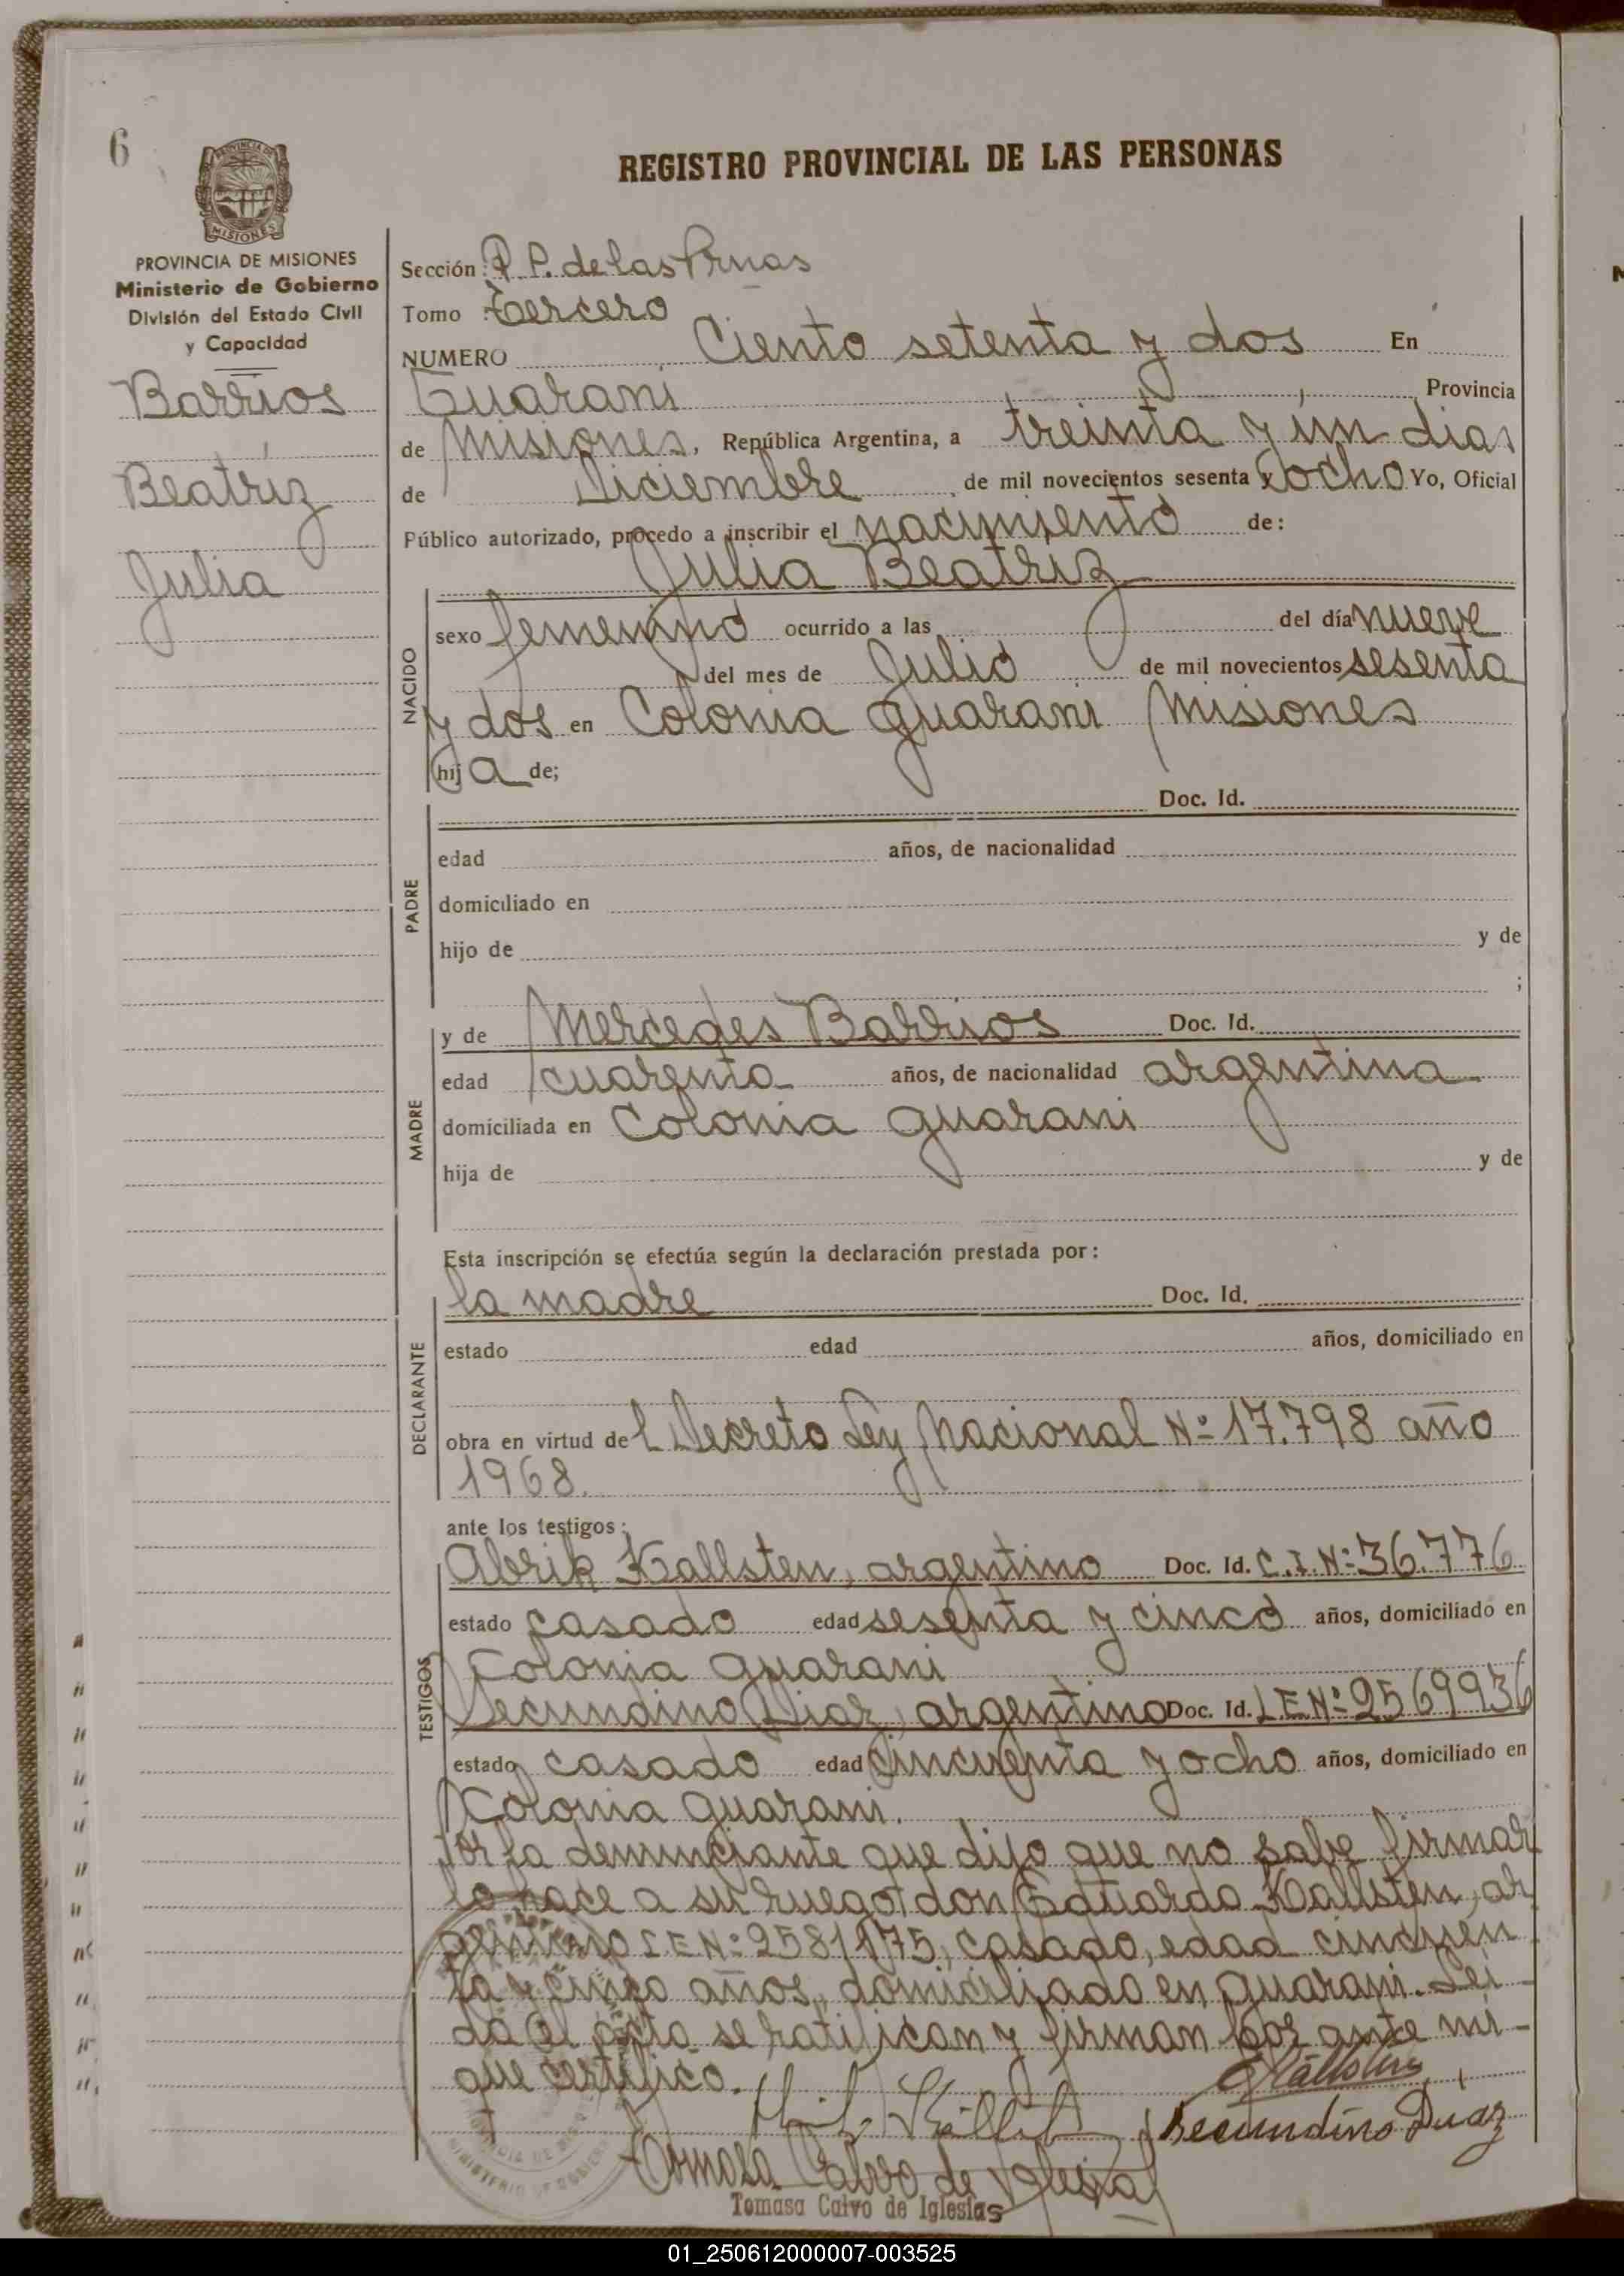 6
PROVINCIA DE MISIONES
REGISTRO PROVINCIAL DE LAS PERSONAS
PROVINCIA DE MISIONES
Ministerio de Gobierno
División del Estado Civil
y Capacidad
Barrios
Beatriz
Julia
Sección R. P. de las Prnas
Tomo Tercero
NUMERO Ciento setenta y dos En
Guarani Provincia
de Misiones, República Argentina, a treinta y un dias
de Diciembre de mil novecientos sesenta y ocho Yo, Oficial
Público autorizado, procedo a inscribir el nacimiento de:
Julia Beatriz
NACIDO
sexo femenino ocurrido a las del día nueve
del mes de Julio de mil novecientos sesenta
y dos en Colonia guarani Misiones
hij a de;
Doc. Id.
PADRE
edad años, de nacionalidad
domiciliado en
hijo de y de
;
MADRE
y de Mercedes Barrios Doc. Id.
edad cuarenta años, de nacionalidad argentina
domiciliada en Colonia guarani
hija de y de
Esta inscripción se efectúa según la declaración prestada por:
DECLARANTE
la madre Doc. Id.
estado edad años, domiciliado en
obra en virtud de l Decreto Ley Nacional Nº 17.798 año
1968.
ante los testigos:
TESTIGOS
Abrik Kallsten, argentino Doc. Id. C.I. Nº 36.776
estado casado edad sesenta y cinco años, domiciliado en
Colonia guarani
Secundino Diaz, argentino Doc. Id. L.E. Nº 2569936
estado casado edad cincuenta y ocho años, domiciliado en
Colonia guarani.
Por la denunciante que dijo que no sabe firmar
lo hace a su ruego don Eduardo Kallsten, ar
gentino L E Nº 2581175, casado, edad cincuen
ta y cinco años, domiciliado en guarani. Lei
da el acta se ratifican y firman por ante mi
que certifico.
E Kallsten
Secundino Duaz
Tomasa Calvo de Iglesias
Tomasa Calvo de Iglesias
01_250612000007-003525